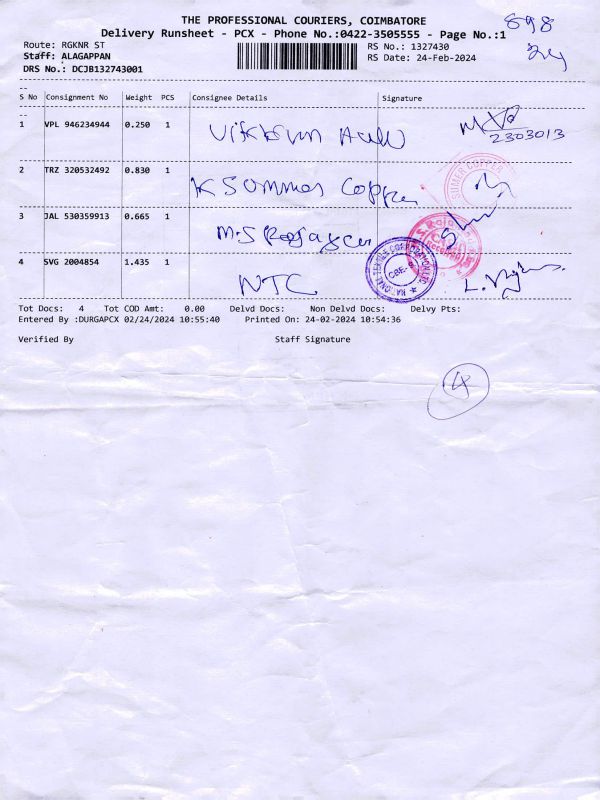 THE PROFESSIONAL COURIERS, COIMBATORE
898
Delivery Runsheet - PCX - Phone No.:0422-3505555 - Page No.:1
24
Route: RGKNR ST
RS No.: 1327430
Staff: ALAGAPPAN
RS Date: 24-Feb-2024
DRS No.: DCJB132743001
S No Consignment No Weight PCS Consignee Details Signature
1 VPL 946234944 0.250 1
2303013
2 TRZ 320532492 0.830 1 K Sommer Copper
SUMER COPPER
3 JAL 530359913 0.665 1 M.S Rajasekar
4 SVG 2004854 1.435 1 NTC
NATIONAL TEXTILE CORPORATION LTD.
CBE-9
Tot Docs: 4 Tot COD Amt: 0.00 Delvd Docs: Non Delvd Docs: Delvy Pts:
Entered By :DURGAPCX 02/24/2024 10:55:40 Printed On: 24-02-2024 10:54:36
Verified By Staff Signature
4